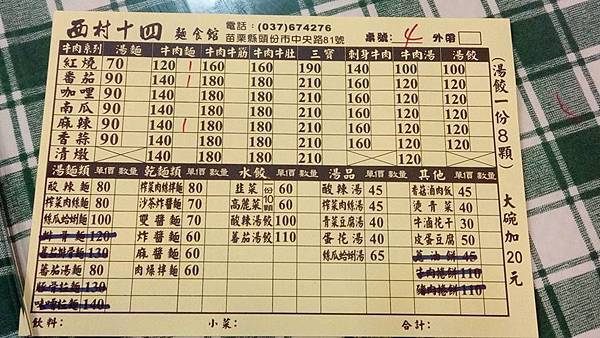 西村十四 麵食館 電話:(037)674276
苗栗縣頭份市中央路81號 桌號: 4 外帶
牛肉系列 湯麵 牛肉麵 牛肉牛筋 牛肉牛肚 三寶 剩身牛肉 牛肉湯 湯餃
紅燒 70 120 1 160 160 190 140 100 100
番茄 90 140 1 180 180 210 160 120 120
咖哩 90 140 180 180 210 160 120 120
南瓜 90 140 180 180 210 160 120 120
麻辣 90 140 1 180 180 210 160 120 120
香蒜 90 140 180 180 210 160 120 120
清燉 140 180 180 210 160 120
(湯餃一份8顆)
大碗加20元
湯麵類 單價 數量 乾麵類 單價 數量 水餃 單價 數量 湯品 單價 數量 其他 單價 數量
酸辣麵 80 榨菜肉絲拌麵 80 韭菜 60 酸辣湯 45 香菇滷肉飯 45
榨菜肉絲麵 80 沙茶炸醬麵 70 一份10顆 高麗菜 60 榨菜肉絲湯 45 燙青菜 40
絲瓜蛤蜊麵 100 雙醬麵 70 酸辣湯餃 100 青菜豆腐湯 40 牛滷花干 30
排骨麵 120 炸醬麵 60 番茄湯餃 110 蛋花湯 40 皮蛋豆腐 50
番茄排骨麵 130 麻醬麵 60 絲瓜蛤蜊湯 65 45
番茄湯麵 80 肉燥拌麵 60 牛肉捲餅 110
130 豬肉捲餅 110
味噌拉麵 140
飲料: 小菜: 合計: